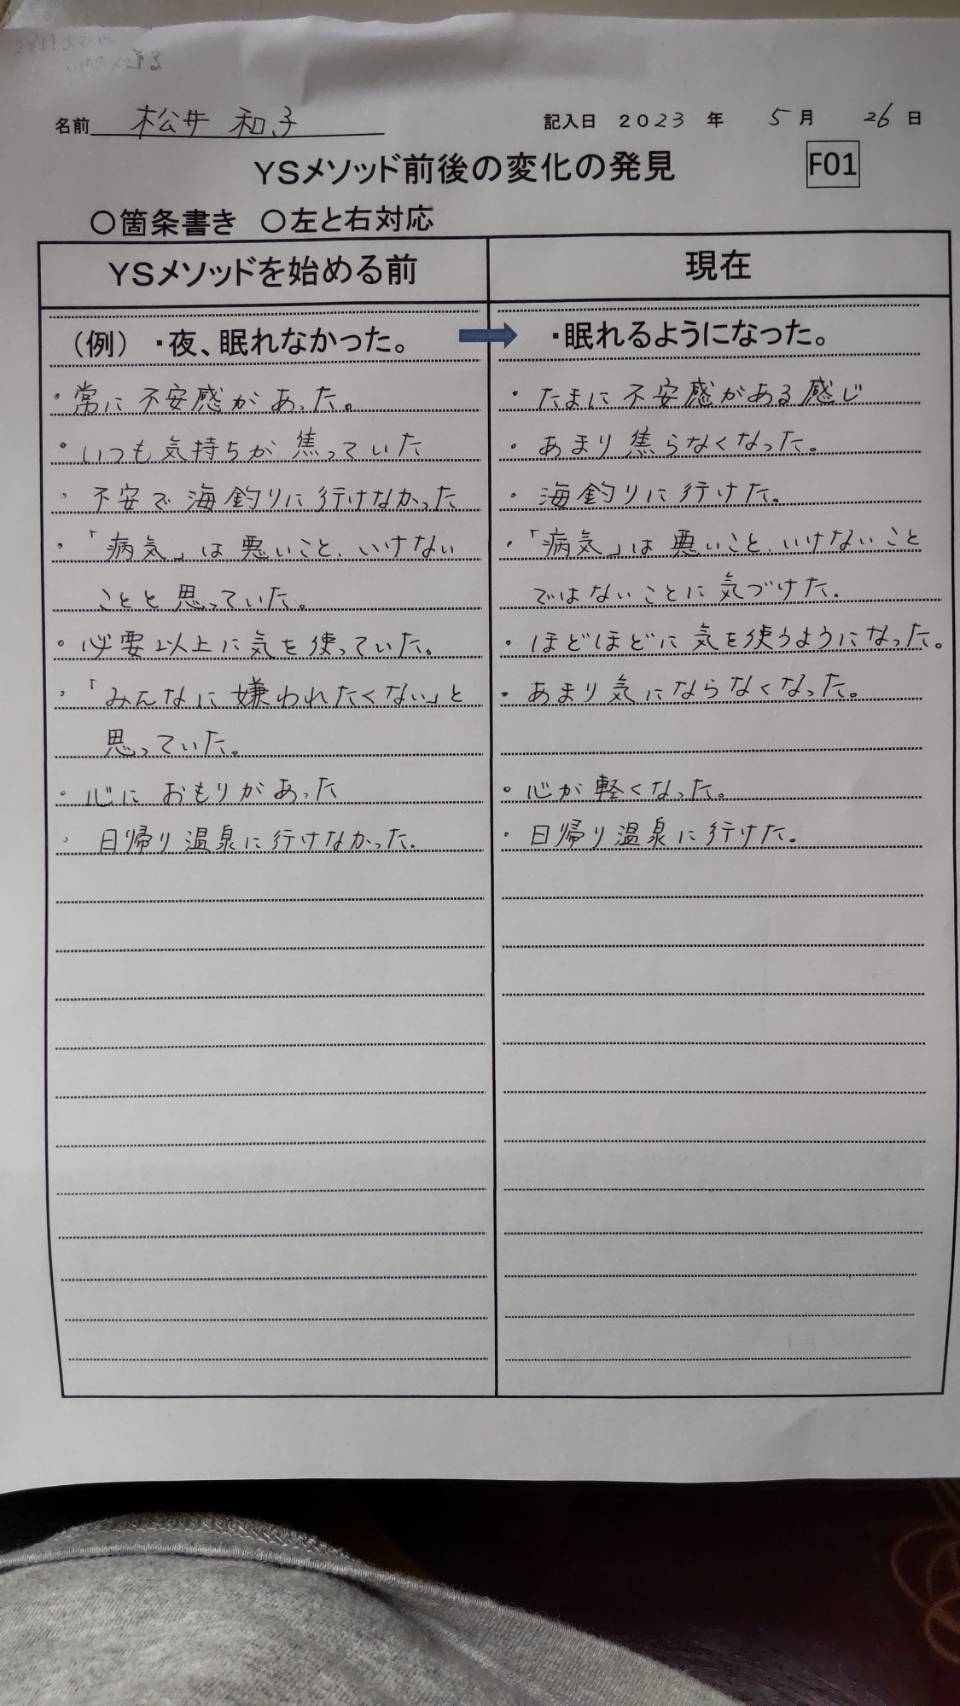 名前 松井 和子 記入日 2023 年 5 月 26 日
YSメソッド前後の変化の発見 F01
○箇条書き ○左と右対応
YSメソッドを始める前 現在
(例) ・夜、眠れなかった。 ・眠れるようになった。
・常に不安感があった。 ・たまに不安感がある感じ
・いつも気持ちが焦っていた ・あまり焦らなくなった。
・不安で海釣りに行けなかった ・海釣りに行けた。
・「病気」は悪いこと、いけない ・「病気」は悪いこと、いけないこと
ことと思っていた。 ではないことに気づけた。
・必要以上に気を使っていた。 ・ほどほどに気を使うようになった。
・「みんなに嫌われたくない」と ・あまり気にならなくなった。
思っていた。
・心におもりがあった ・心が軽くなった。
・日帰り温泉に行けなかった。 ・日帰り温泉に行けた。